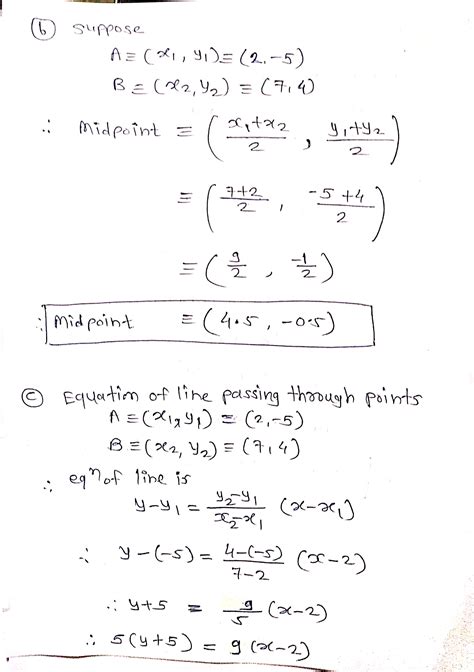 (b) suppose
A ≡ (x₁, y₁) ≡ (2, -5)
B ≡ (x₂, y₂) ≡ (7, 4)
∴ Midpoint ≡ ( (x₁+x₂)/2 , (y₁+y₂)/2 )
≡ ( (7+2)/2 , (-5+4)/2 )
≡ ( 9/2 , -1/2 )
∴ Midpoint ≡ (4.5, -0.5)
(c) Equation of line passing through points
A ≡ (x₁, y₁) ≡ (2, -5)
B ≡ (x₂, y₂) ≡ (7, 4)
∴ eqⁿ of line is
y-y₁ = (y₂-y₁)/(x₂-x₁) (x-x₁)
∴ y-(-5) = (4-(-5))/(7-2) (x-2)
∴ y+5 = 9/5 (x-2)
∴ 5(y+5) = 9(x-2)